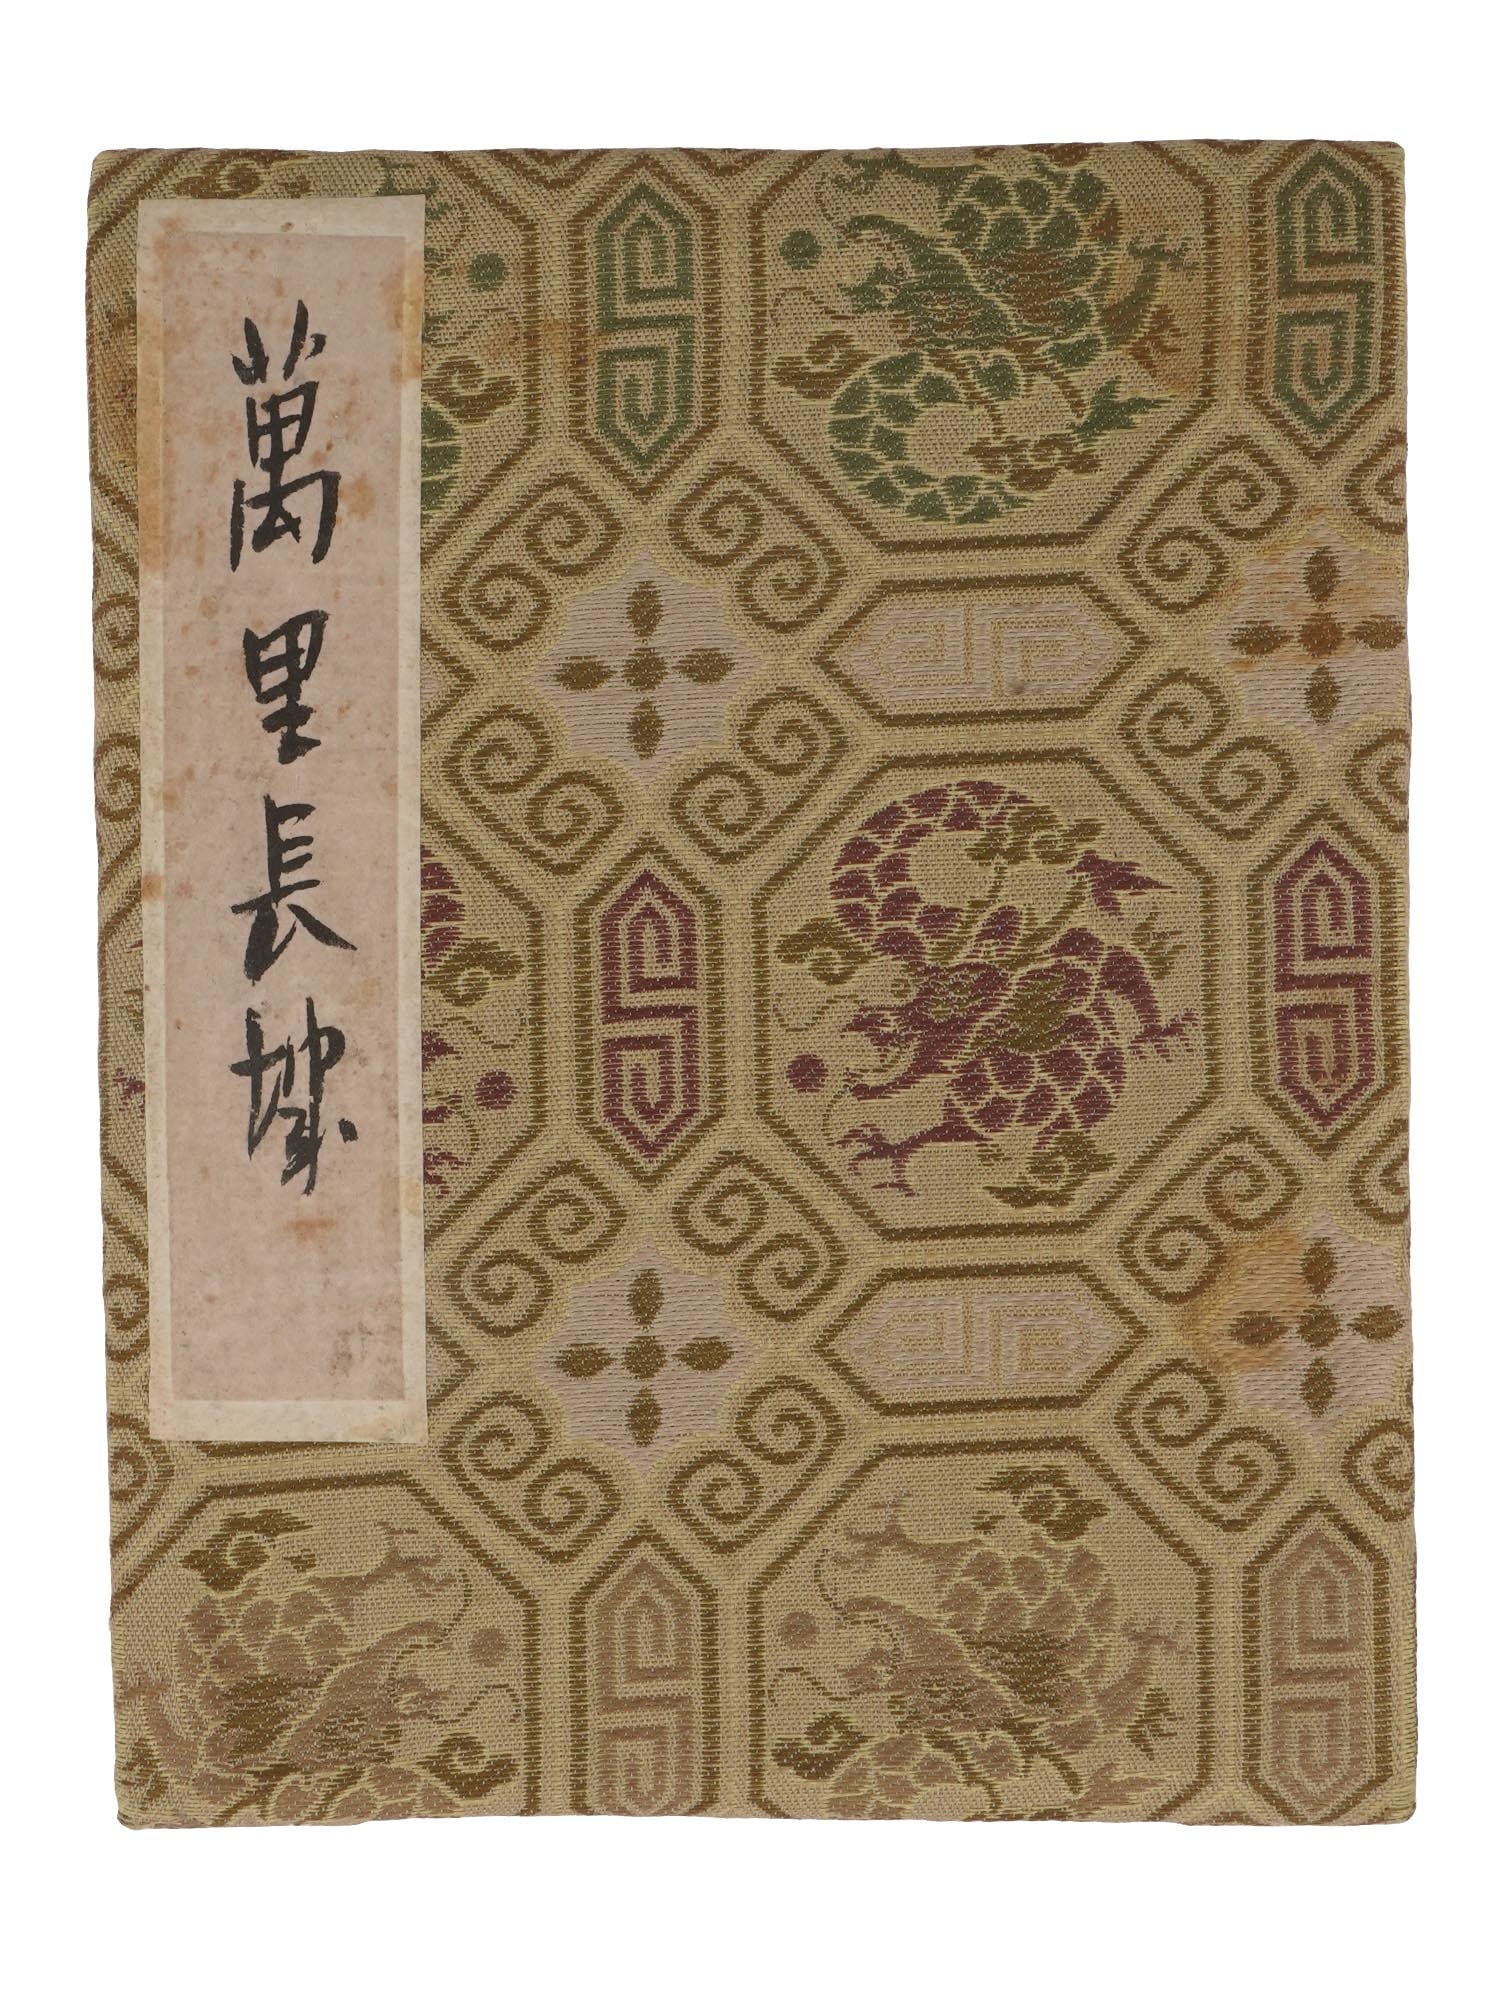 萬里長城